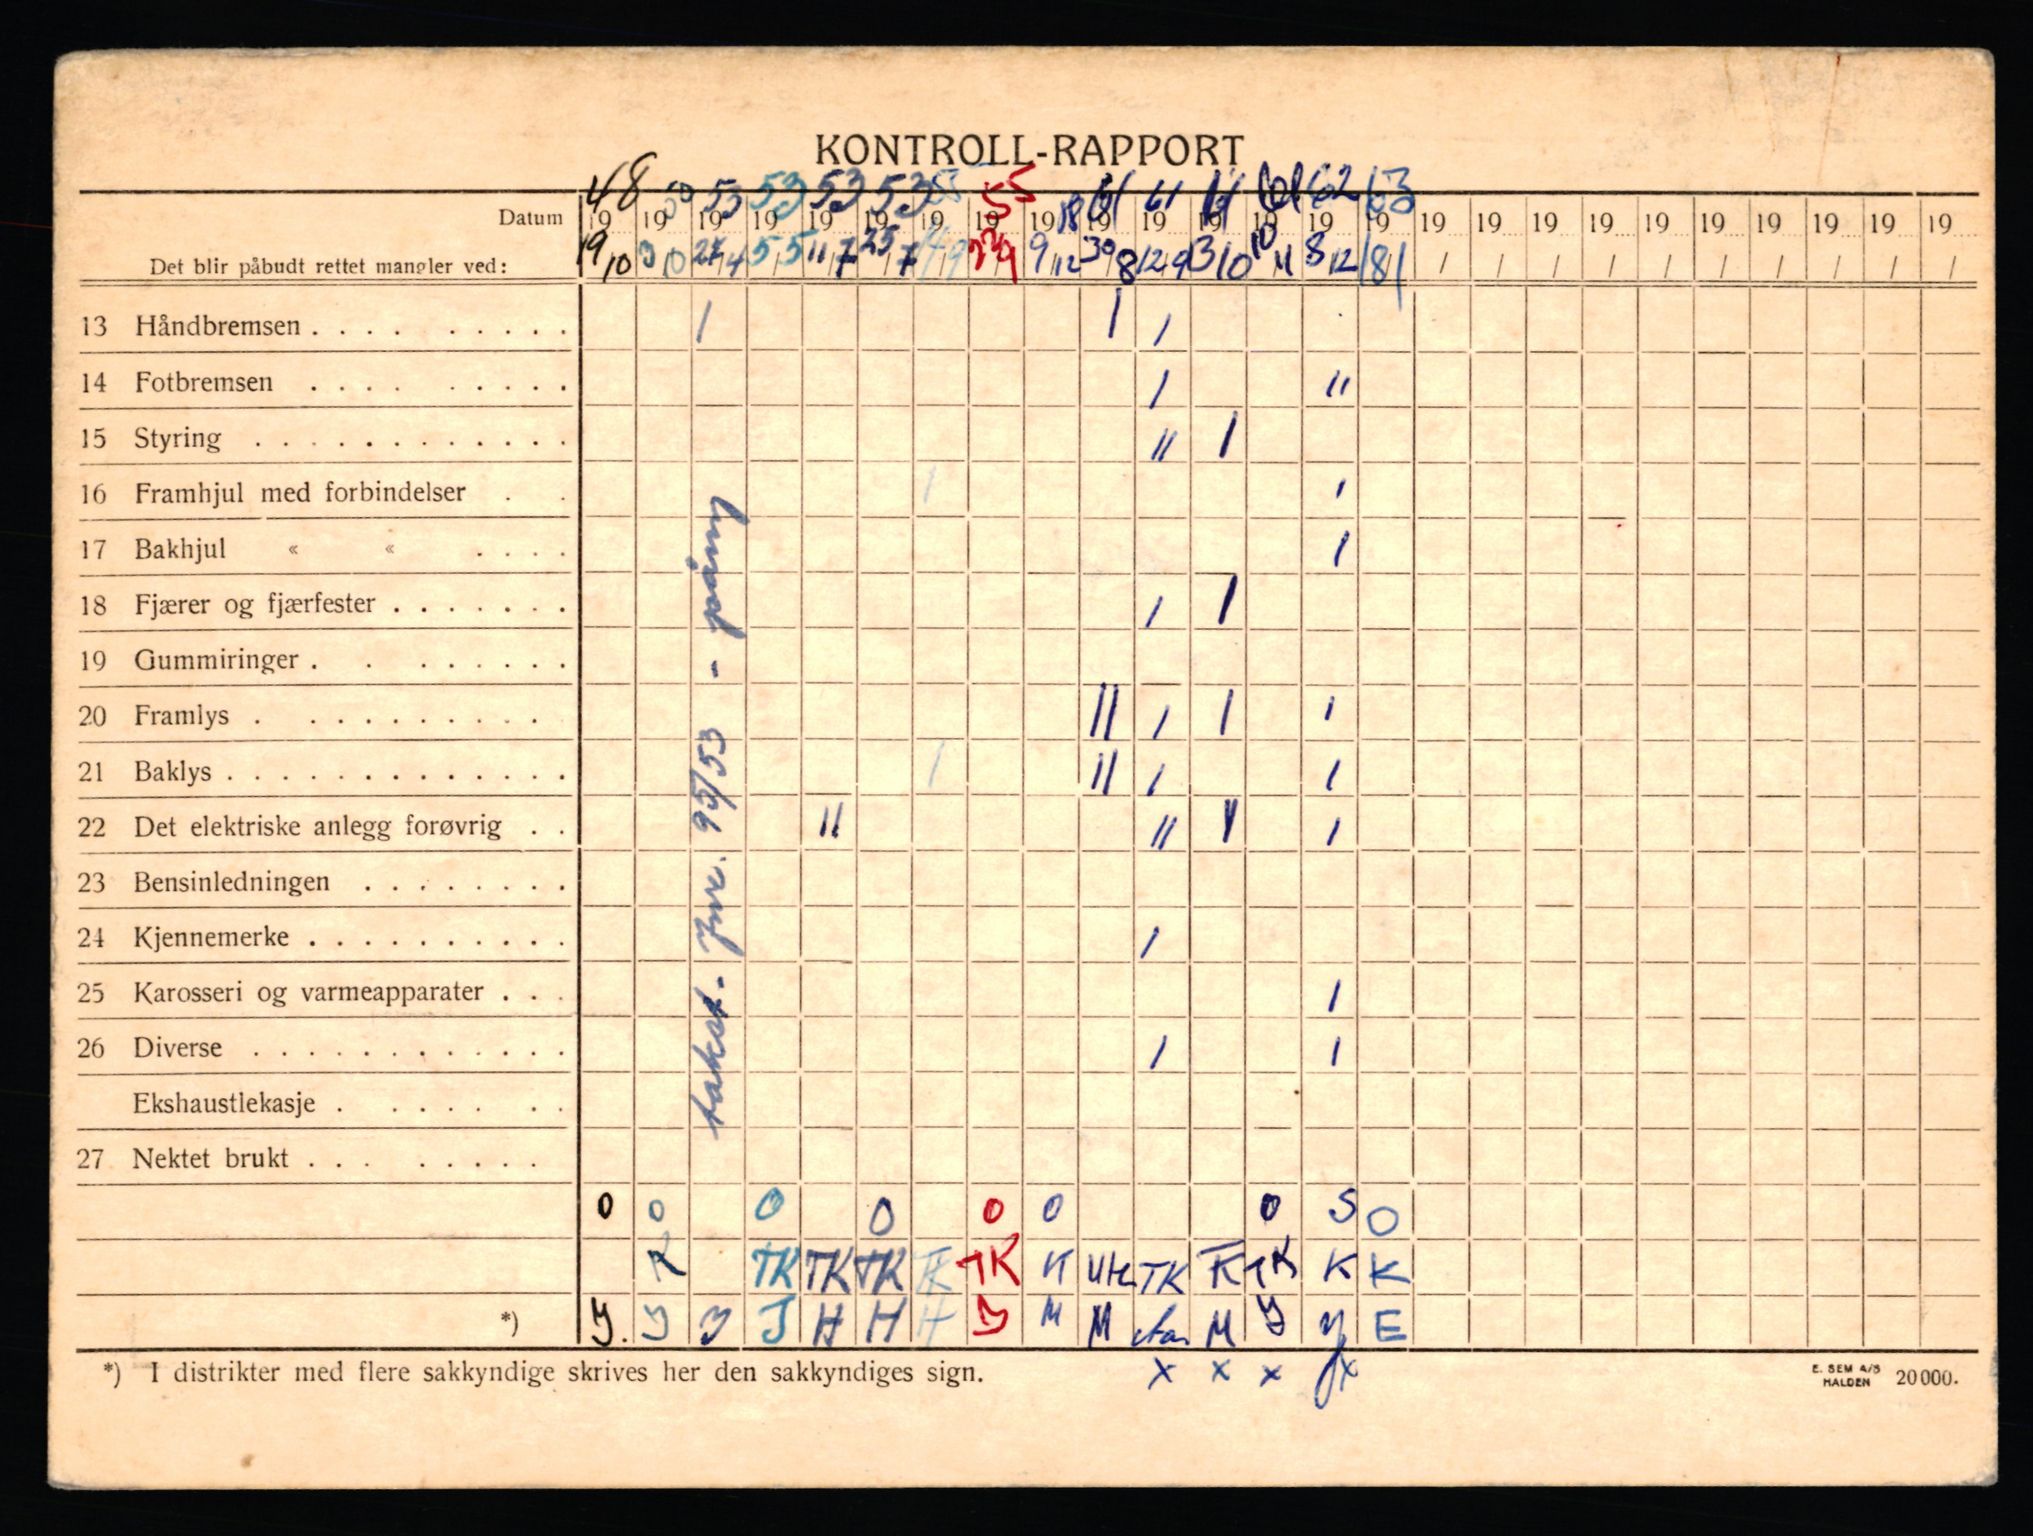 KONTROLL-RAPPORT
48 50 53 53 53 53 55 55 18 61 61 61 61 62 63
Datum 19 19 19 19 19 19 19 19 19 19 19 19 19 19 19 19 19 19 19 19 19 19 19 19 19
Det blir påbudt rettet mangler ved: 19/10 3/10 27/4 5/5 11/7 25/7 9/12 30/8 12/9 3/10 10/11 8/12 18/1 / / / / / / / / / /
13 Håndbremsen . . . . . . . . . I I I
14 Fotbremsen . . . . . . . . . I II
15 Styring . . . . . . . . . . . . II I
16 Framhjul med forbindelser . . I I
17 Bakhjul « « . . . . I
18 Fjærer og fjærfester . . . . . . . I I
19 Gummiringer . . . . . . . .
20 Framlys . . . . . . . . . . II I I I
21 Baklys . . . . . . . . . . . . . I II I I
22 Det elektriske anlegg forøvrig . . II II I I
23 Bensinledningen . . . . . . . .
24 Kjennemerke . . . . . . . . . . I
25 Karosseri og varmeapparater . . . I
26 Diverse . . . . . . . . . . . . I I
Ekshaustlekasje . . . . . . .
27 Nektet brukt . . . . . . . .
takst. 95/53 -
0 0 0 0 0 0 0 S 0
TK TK TK TK TK K TK K TK K K
*) H H H M M M E
x x x x
*) I distrikter med flere sakkyndige skrives her den sakkyndiges sign.
E. SEM A/S
HALDEN 20000.